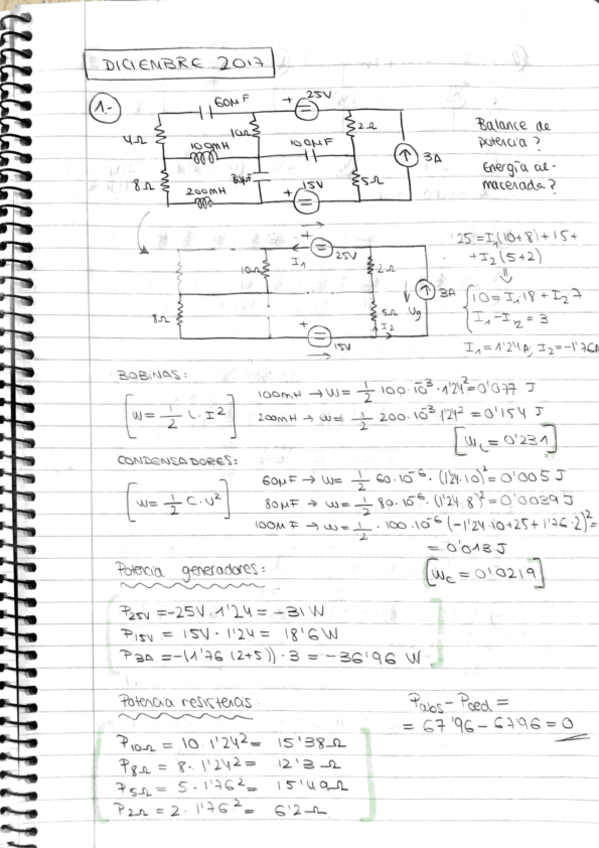 DICIEMBRE 2017
1.-
60μF
+
25V
4Ω
10Ω
2Ω
100mH
100μF
3A
8Ω
80μF
5Ω
200mH
+
15V
Balance de
potencia?
Energía al-
macenada?
+
I1
25V
10Ω
2Ω
3A
8Ω
5Ω
Ug
I2
+
15V
25 = I1(10+8) + 15+
+I2(5+2)
⇓
10 = I1·18 + I2 7
I1 - I2 = 3
I1 = 1'24A, I2 = -1'76A
BOBINAS:
[W = 1/2 L·I²]
100mH → W = 1/2 100·10⁻³·1'24² = 0'077 J
200mH → W = 1/2 200·10⁻³ 1'24² = 0'154 J
[WL = 0'231]
CONDENSADORES:
[W = 1/2 C·U²]
60μF → W = 1/2 60·10⁻⁶·(1'24·10)² = 0'005 J
80μF → W = 1/2 80·10⁻⁶·(1'24·8)² = 0'0039 J
100μF → W = 1/2·100·10⁻⁶(-1'24·10+25+1'76·2)² =
= 0'013 J
[WC = 0'0219]
Potencia generadores:
P25V = -25V·1'24 = -31 W
P15V = 15V·1'24 = 18'6 W
P3A = -(1'76 (2+5))·3 = -36'96 W
Potencia resistencias
P10Ω = 10·1'24² = 15'38Ω
P8Ω = 8·1'24² = 12'3Ω
P5Ω = 5·1'76² = 15'49Ω
P2Ω = 2·1'76² = 6'2Ω
Pabs - Pced =
= 67'96 - 67'96 = 0